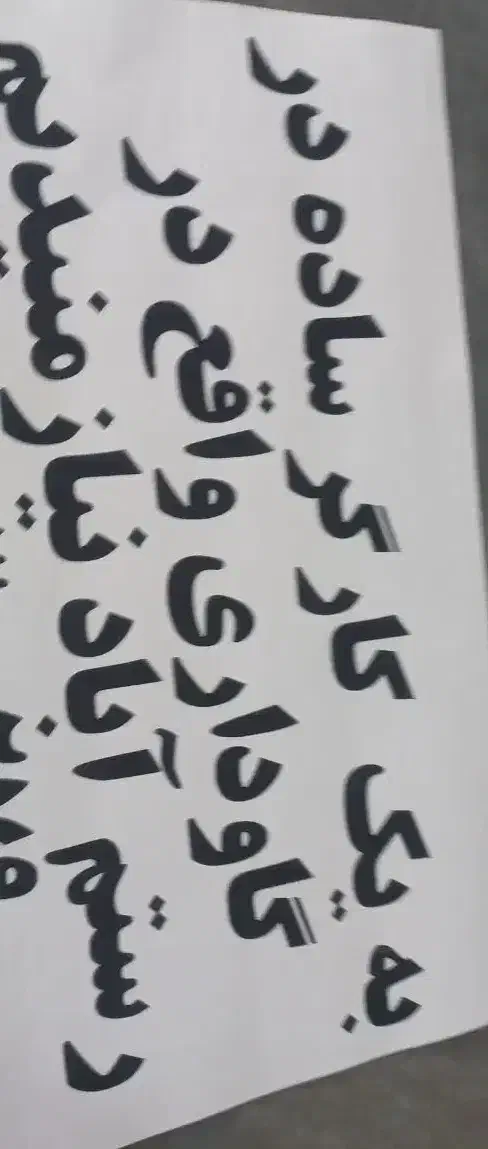 به یک کارگر ساده در
گاوداری واقع در
رستم آباد نیاز مندیم